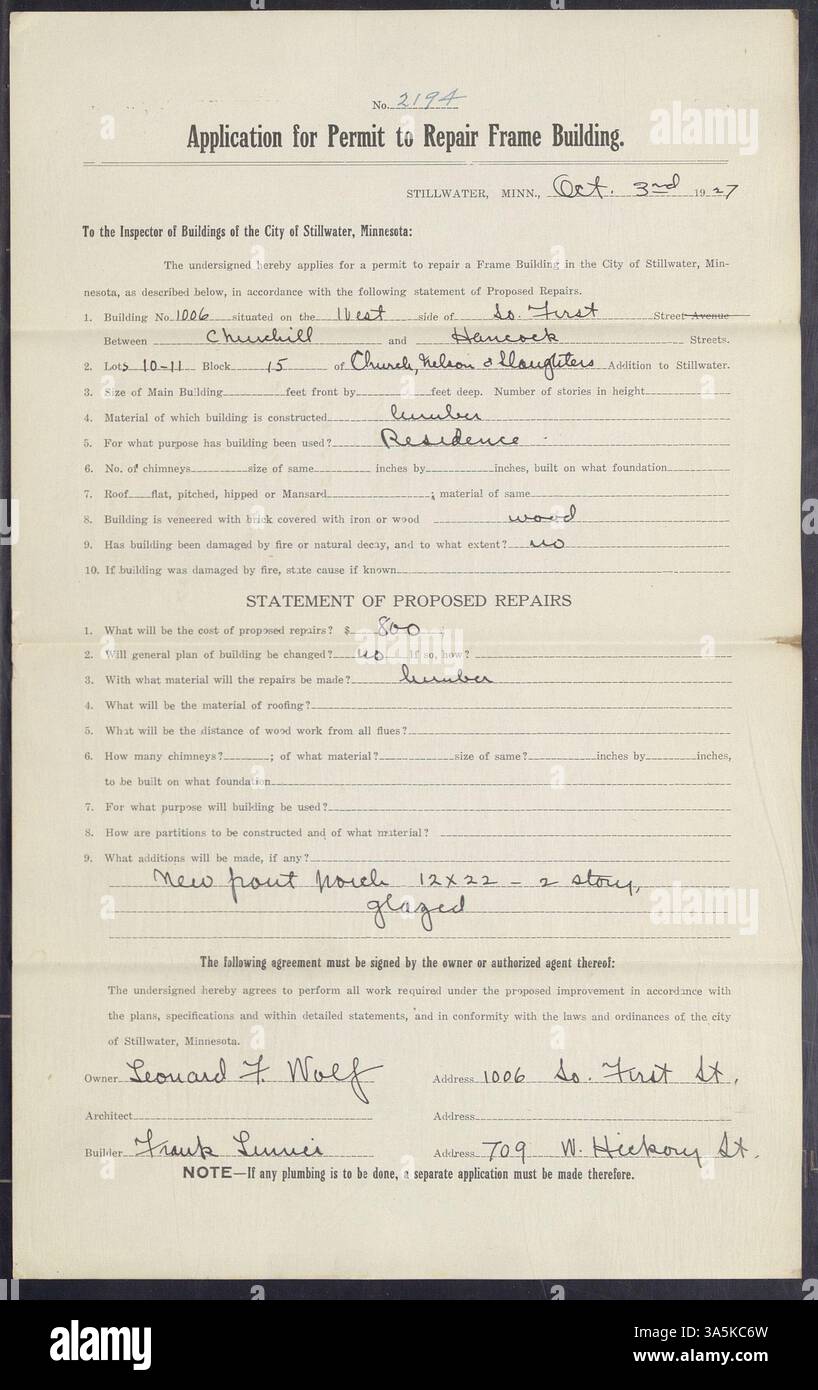 No. 2194
Application for Permit to Repair Frame Building.
STILLWATER, MINN., Oct. 3rd 1927
To the Inspector of Buildings of the City of Stillwater, Minnesota:
The undersigned hereby applies for a permit to repair a Frame Building in the City of Stillwater, Min-
nesota, as described below, in accordance with the following statement of Proposed Repairs.
1. Building No. 1006 situated on the West side of So. First Street Avenue
Between Churchill and Hancock Streets.
2. Lots 10-11 Block 15 of Church, Nelson & Slaughters Addition to Stillwater.
3. Size of Main Building feet front by feet deep. Number of stories in height
4. Material of which building is constructed lumber
5. For what purpose has building been used? Residence
6. No. of chimneys size of same inches by inches, built on what foundation
7. Roof flat, pitched, hipped or Mansard ; material of same
8. Building is veneered with brick covered with iron or wood wood
9. Has building been damaged by fire or natural decay, and to what extent? no
10. If building was damaged by fire, state cause if known
STATEMENT OF PROPOSED REPAIRS
1. What will be the cost of proposed repairs? $ 800
2. Will general plan of building be changed? no If so, how?
3. With what material will the repairs be made? lumber
4. What will be the material of roofing?
5. What will be the distance of wood work from all flues?
6. How many chimneys? ; of what material? size of same? inches by inches,
to be built on what foundation
7. For what purpose will building be used?
8. How are partitions to be constructed and of what material?
9. What additions will be made, if any?
New front porch 12x22 - 2 story,
glazed
The following agreement must be signed by the owner or authorized agent thereof:
The undersigned hereby agrees to perform all work required under the proposed improvement in accordance with
the plans, specifications and within detailed statements, and in conformity with the laws and ordinances of the city
of Stillwater, Minnesota.
Owner Leonard F. Wolf Address 1006 So. First St.
Architect Address
Builder Frank Address 709 W. Hickory St.
NOTE—If any plumbing is to be done, a separate application must be made therefore.
alamy
Image ID: 3A5KC6W
www.alamy.com